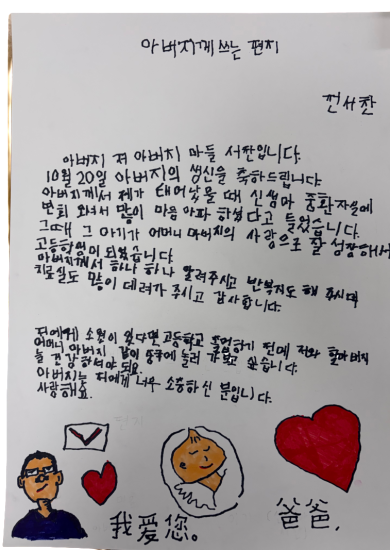 아버지께 쓰는 편지
전서찬
아버지 저 아버지 아들 서찬입니다.
10월 20일 아버지의 생신을 축하드립니다.
아버지께서 제가 태어났을 때 신생아 중환자실에
면회 와서 많이 마음 아파 하셨다고 들었습니다.
그때 그 아기가 어머니 아버지의 사랑으로 잘 성장해서
고등학생이 되었습니다
아버지께서 하나 하나 알려주시고 반복지도 해 주시며
치료실도 많이 데려가 주시고 감사합니다.
저에게 소원이 있다면 고등학교 졸업하기 전에 저와 할아버지
어머니 아버지 같이 중국에 놀러 가보고 싶습니다.
늘 건강하셔야 되요.
아버지는 저에게 너무 소중하신 분입니다.
사랑해요.
我爱您。
爸爸,